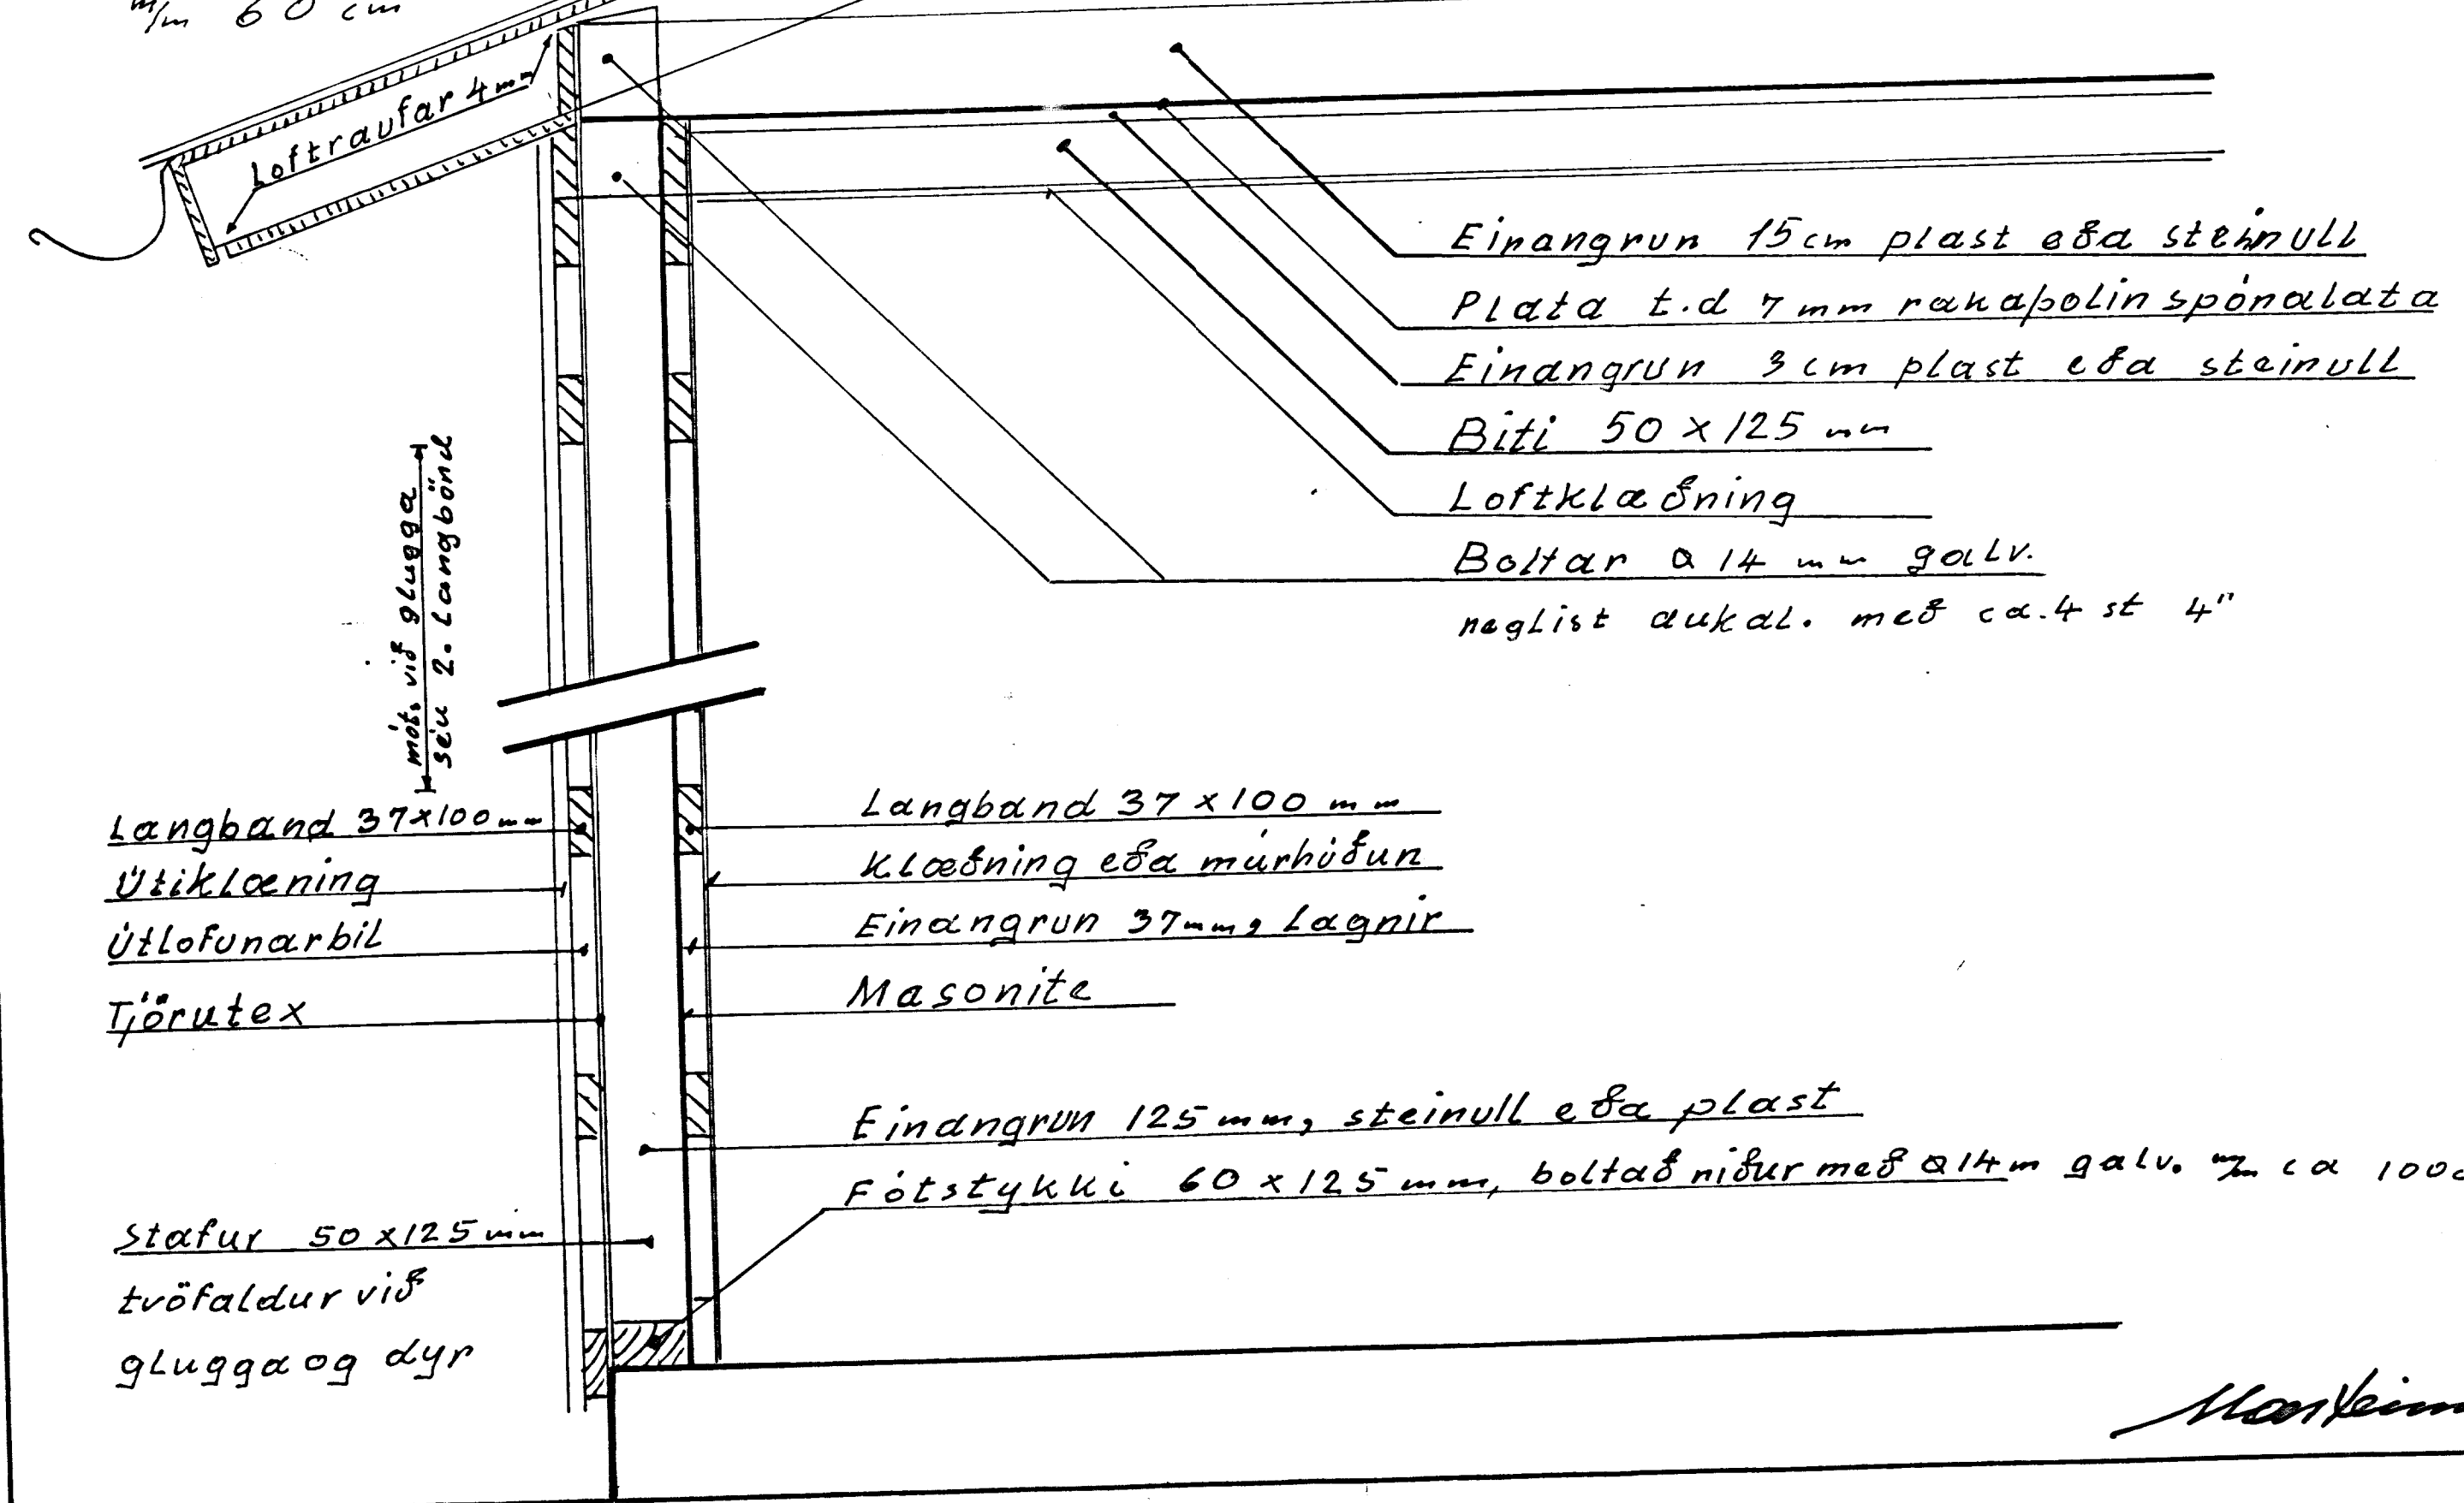 m/m 60 cm
Loftraufar 4mm
Einangrun 15cm plast eða steinull
Plata t.d 7 mm rakaþolin spónalata
Einangrun 3 cm plast eða steinull
Biti 50 x 125 mm
Loftklæðning
Boltar ø 14 mm galv.
neglist aukal. með ca. 4 st 4"
mót. við glugga
séu 2. Langbönd
Langband 37x100 mm
Útiklæning
Útlofunarbil
Tjörutex
Langband 37 x 100 mm
Klæðning eða múrhúðun
Einangrun 37mm, Lagnir
Masonite
Einangrun 125 mm, steinull eða plast
Fótstykki 60 x 125 mm, boltað niður með ø14m galv. m/m ca 100
Stafur 50 x 125 mm
tvöfaldur við
glugga og dyr